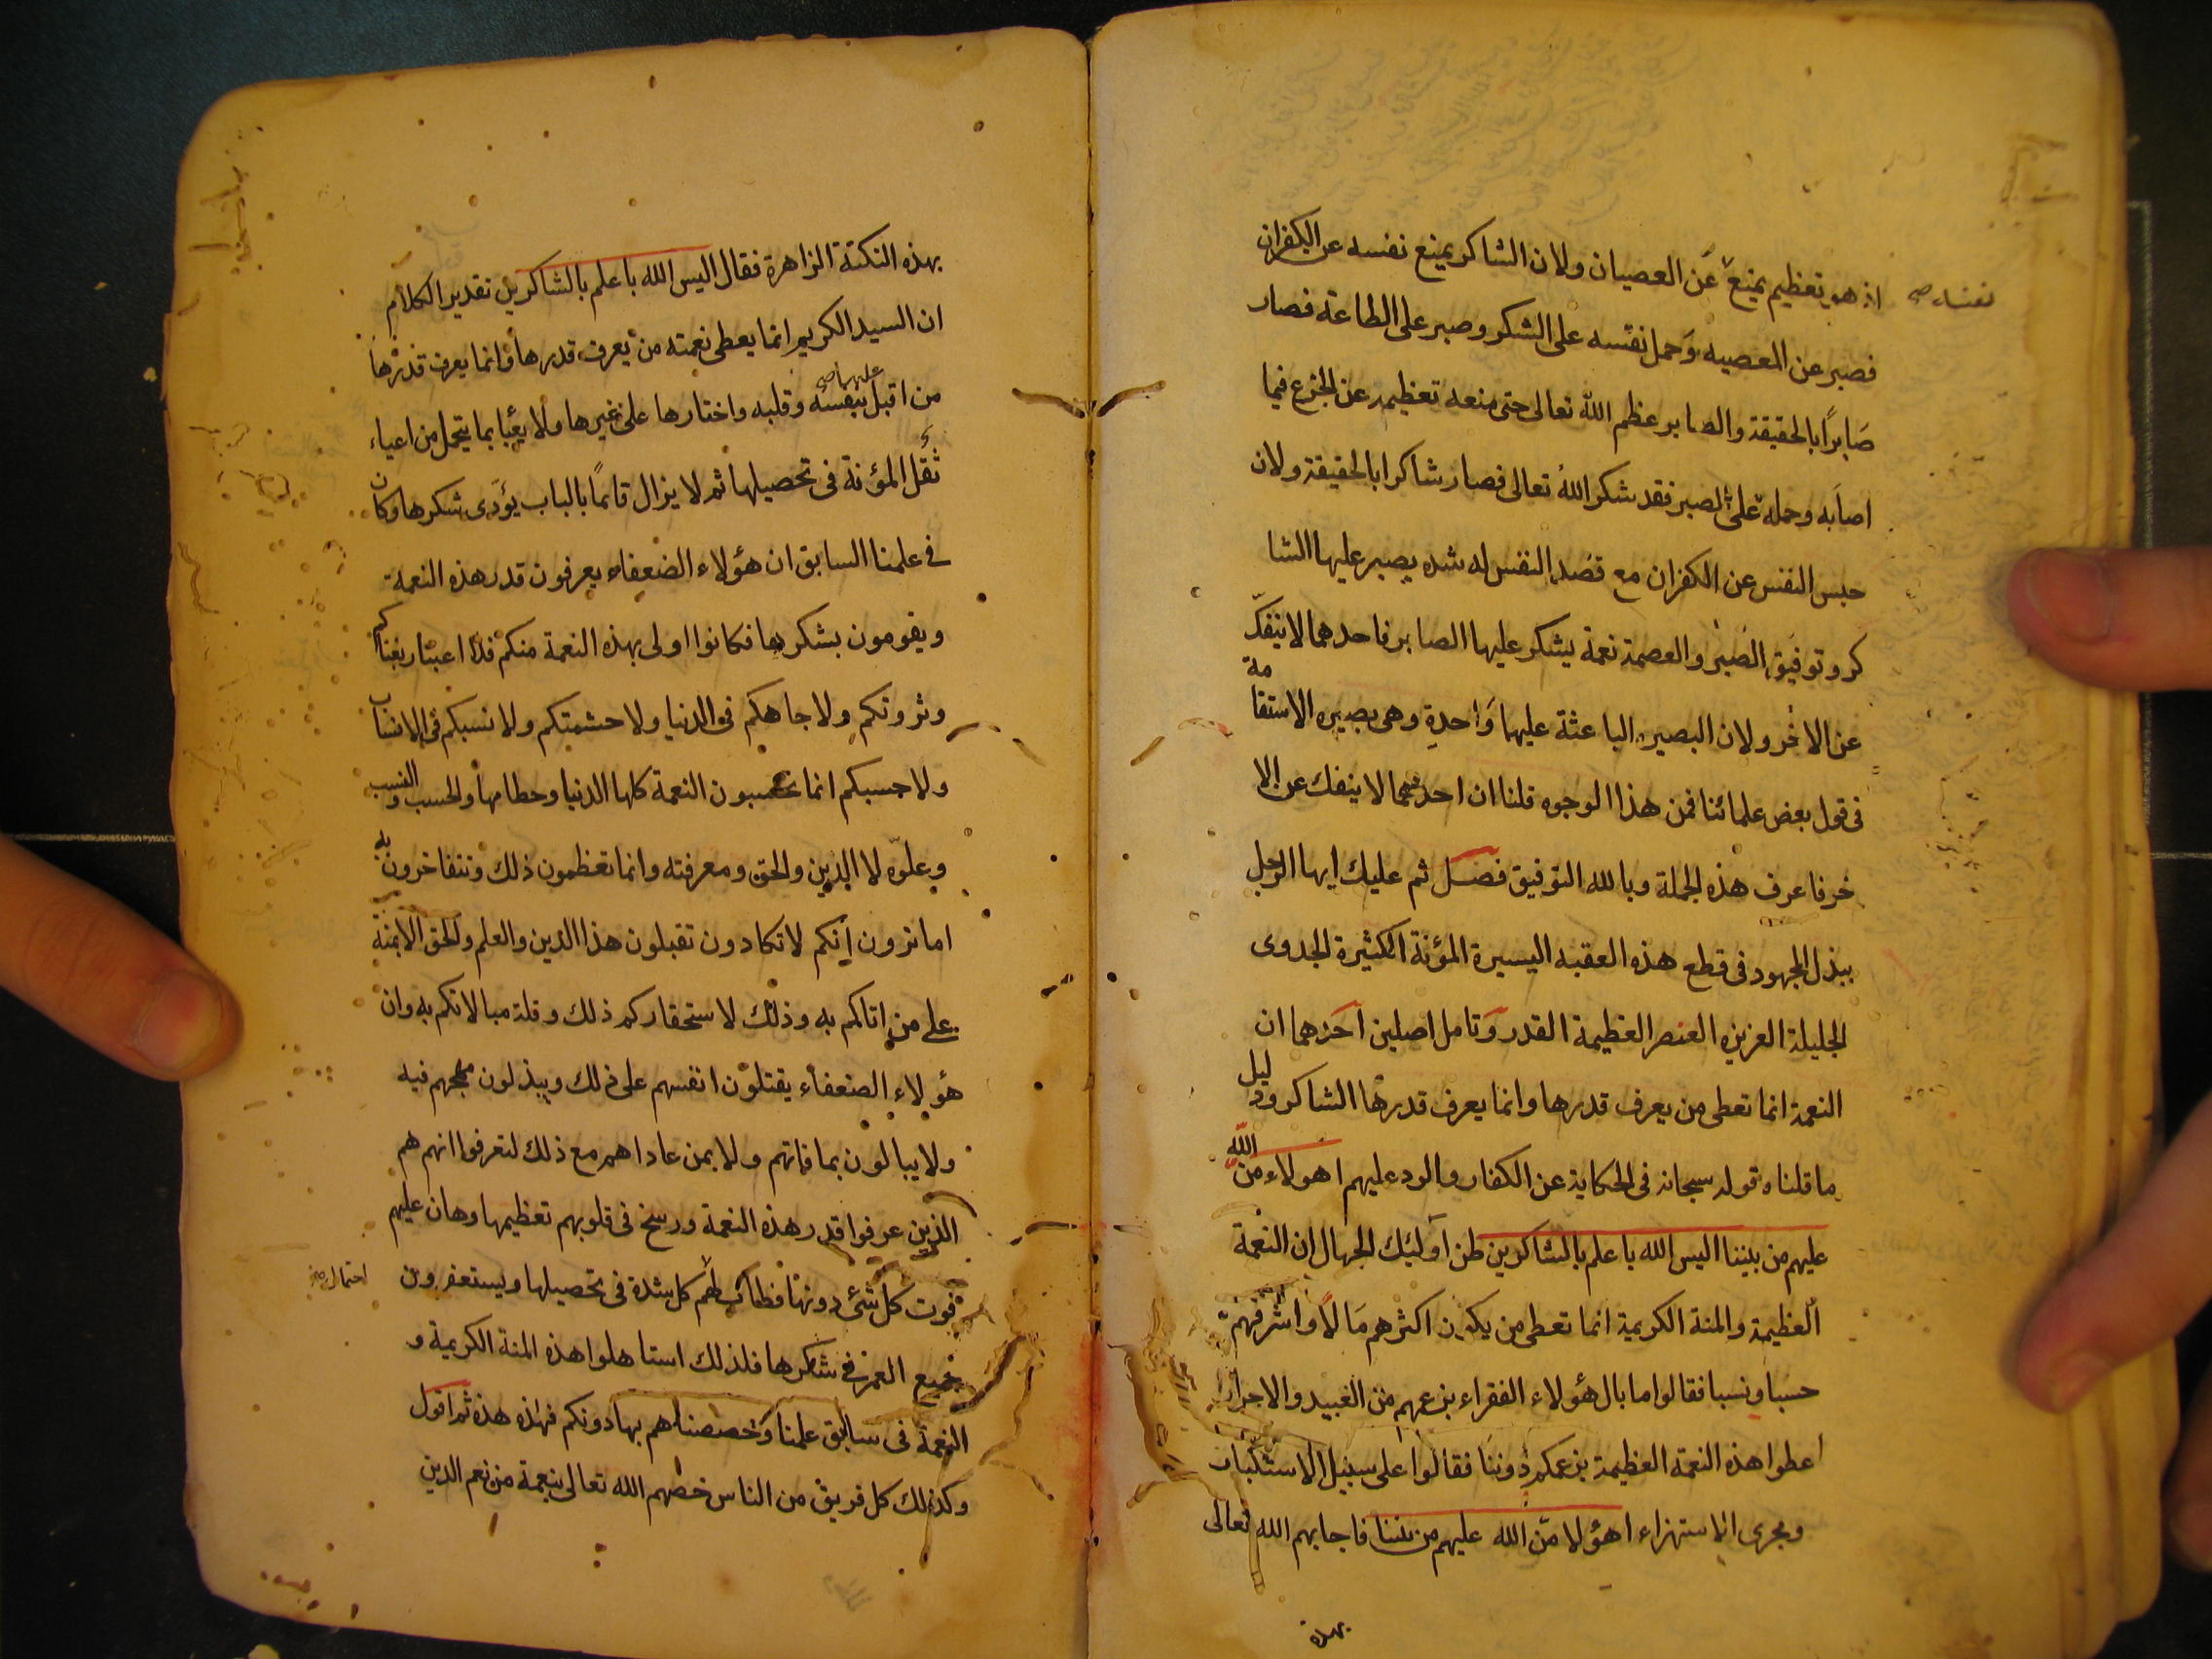 اذ هو تعظيم يمنع عن العصيان ولان الشاكر يمنع نفسه عن الكفران
نفسه صح
فصبر عن المعصيه وحمل نفسه على الشكر وصبر على الطاعة فصار
صابرًا بالحقيقة والصابر عظم الله تعالى حتى منعه تعظيمه عن الجزع فيما
اصابه وحمله على الصبر فقد شكر الله تعالى فصار شاكرا بالحقيقة ولان
حبس النفس عن الكفران مع قصد النفس له شده يصبر عليها الشا
كر وتوفيق الصبر والعصمة نعمة يشكر عليها الصابر فاحدهما لا ينفك
عن الاخر ولان البصيره الباعثة عليهما واحدة وهى بصيره الاستقامة
فى قول بعض علمائنا فمن هذا الوجوه قلنا ان احدهما لا ينفك عن الا
خر فاعرف هذه الجملة وبالله التوفيق فصل ثم عليك ايها الرجل
ببذل المجهود فى قطع هذه العقبه اليسيرة المؤنة الكثيرة الجدوى
الجليلة العزيزه العنصر العظيمة القدر وتامل اصلين احدهما ان
النعمة انما تعطى من يعرف قدرها وانما يعرف قدرها الشاكر ودليل
ما قلناه قوله سبحانه فى الحكاية عن الكفار والرد عليهم اهولاء من الله
عليهم من بيننا اليس الله باعلم بالشاكرين ظن اولئك الجهال ان النعمة
العظيمة والمنة الكريمة انما تعطى من يكون اكثرهم مالًا واشرفهم
حسبا ونسبا فقالوا ما بال هؤلاء الفقراء بزعمهم من العبيد والاحرار
اعطوا هذه النعمة العظيمة بزعمكم دوننا فقالوا على سبيل الاستكبار
ومجرى الاستهزاء اهؤلا من الله عليهم من بيننا فاجابهم الله تعالى
بهذه
بهذه النكتة الزاهرة فقال اليس الله باعلم بالشاكرين تقدير الكلام
ان السيد الكريم انما يعطى نعمته من يعرف قدرها وانما يعرف قدرها
من اقبل عليها صح بنفسه وقلبه واختارها على غيرها ولا يعبأ بما يتحمل من اعياء
ثقل المؤنة فى تحصيلها ثم لا يزال قائمًا بالباب يؤدى شكرها وكان
فى علمنا السابق ان هؤلاء الضعفاء يعرفون قدر هذه النعمة
ويقومون بشكرها فكانوا اولى بهذه النعمة منكم فلا اعتبار بغناكم
وثروتكم ولا جاهكم فى الدنيا ولا حشمتكم ولا نسبكم فى الانساب
ولا حسبكم انما تحسبون النعمة كلها الدنيا وحطامها والحسب والنسب
وعلوّه لا الدين والحق ومعرفته وانما تعظمون ذلك وتتفاخرون به
اما ترون انكم لا تكادون تقبلون هذا الدين والعلم والحق الا بمنة
على من اتاكم به وذلك لاستحقاركم ذلك وقلة مبالاتكم به وان
هؤلاء الضعفاء يقتلون انفسهم على ذلك ويبذلون مهجهم فيه
ولا يبالون بما فاتهم ولا بمن عاداهم مع ذلك لتعرفوا انهم هم
الذين عرفوا قدر هذه النعمة ورسخ فى قلوبهم تعظيمها وهان عليهم
فوت كل شئ دونها فطاب لهم كل شدة فى تحصيلها ويستغفرون
احتمال صح
جميع العمر فى شكرها فلذلك استاهلوا هذه المنة الكريمة و
النعمة فى سابق علمنا وخصصناهم بها دونكم فهذه هذه ثم اقول
وكذلك كل فريق من الناس خصهم الله تعالى بنعمة من نعم الدين